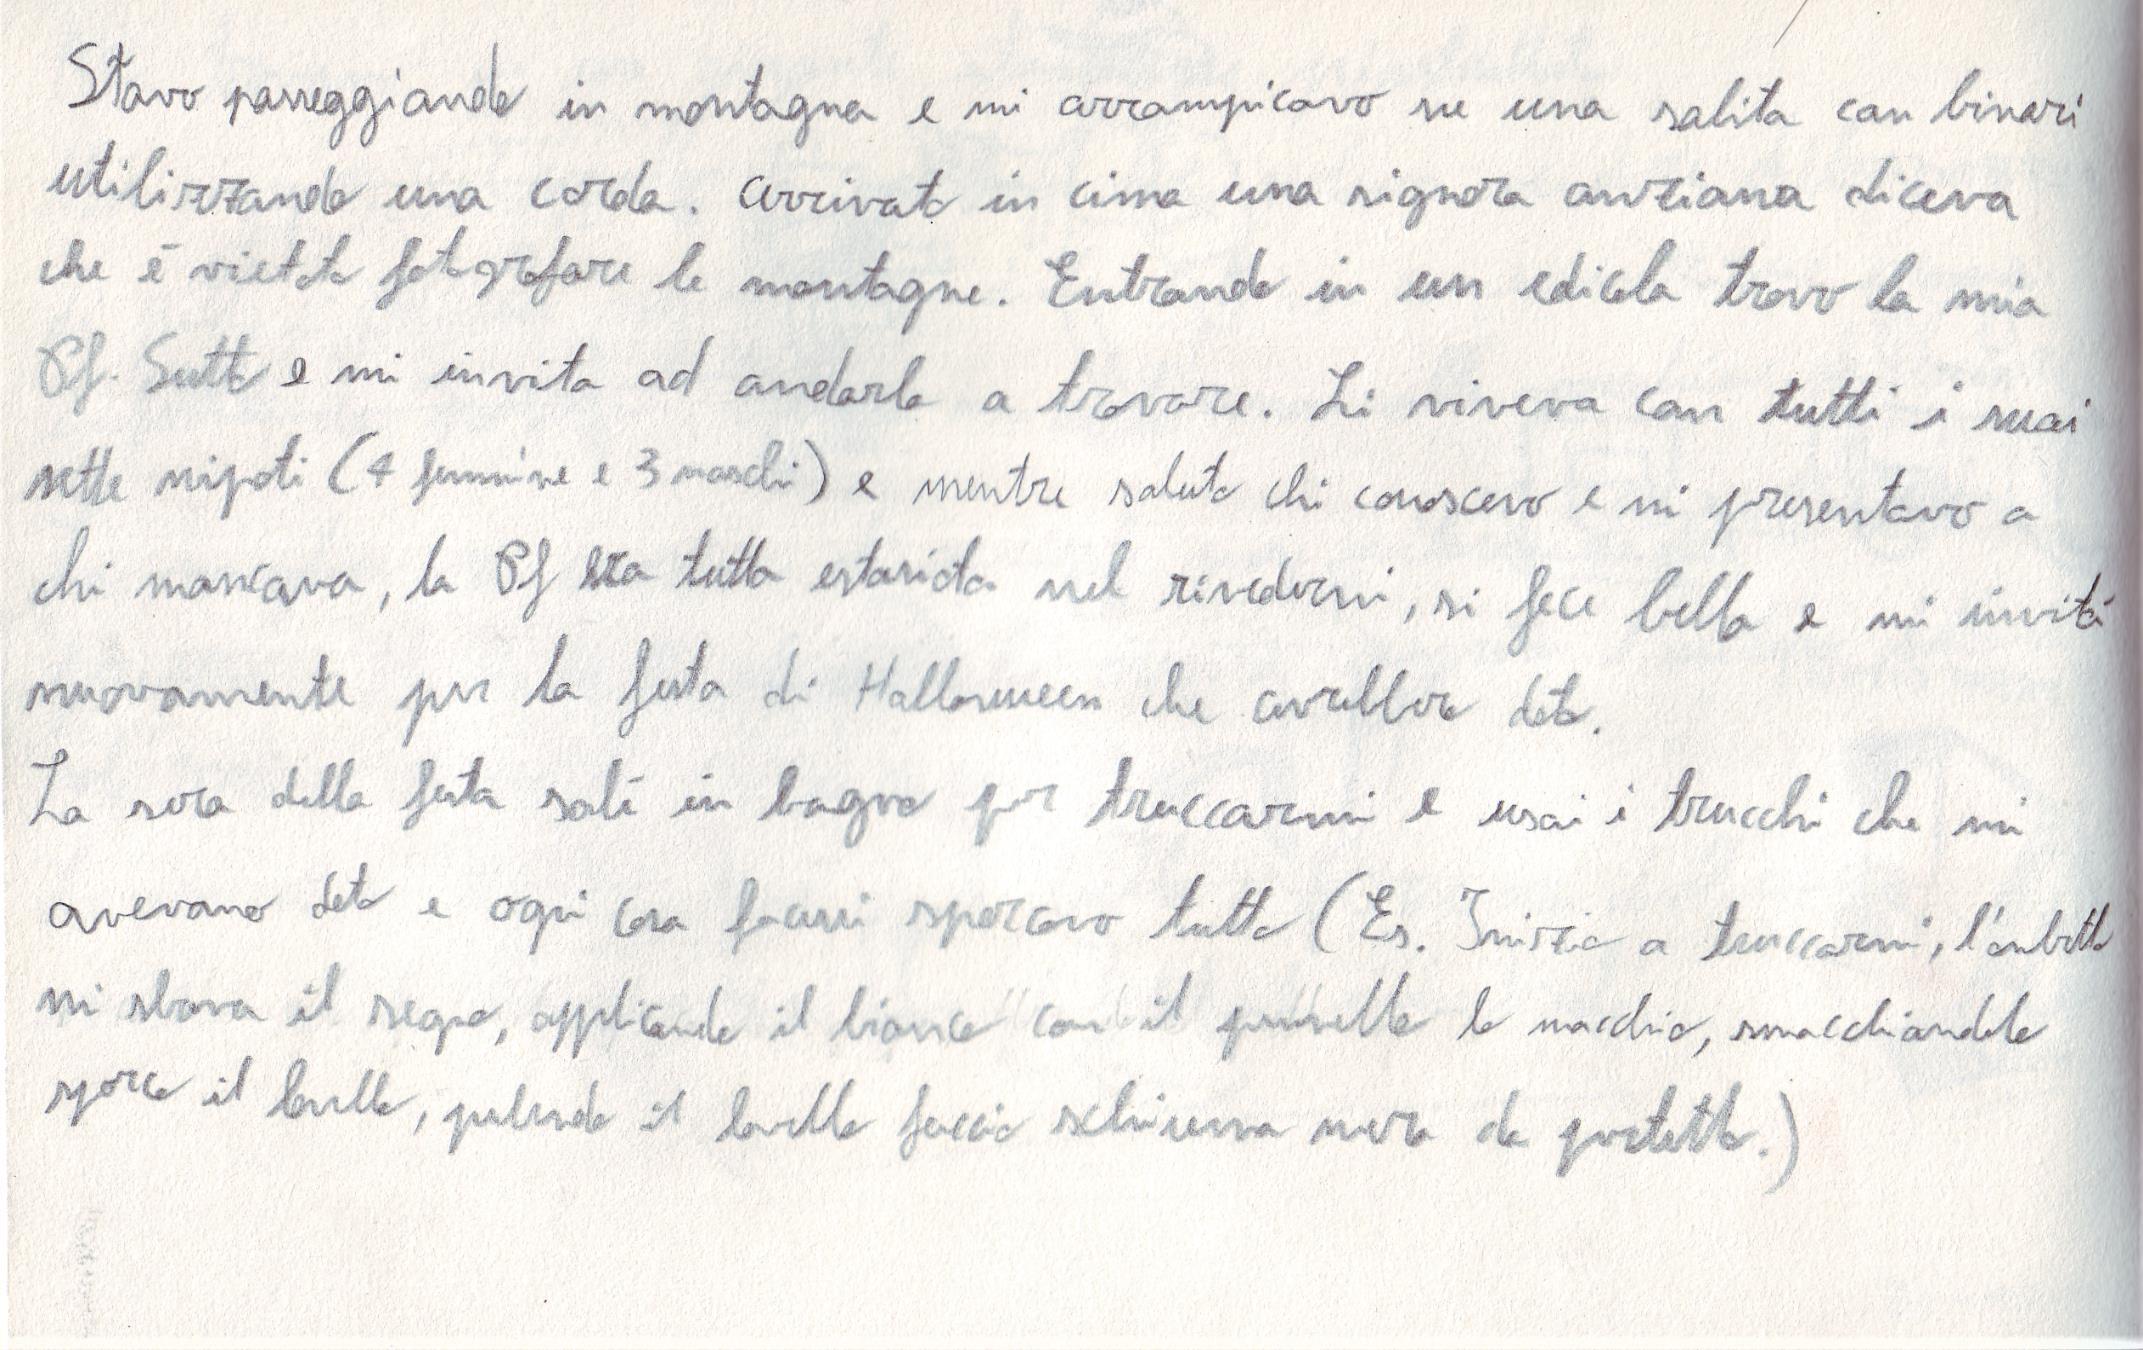 Stavo passeggiando in montagna e mi arrampicavo su una salita con binari
utilizzando una corda. Arrivato in cima una signora anziana diceva
che è vietato fotografare le montagne. Entrando in un edicola trovo la mia
Pf. Sutto e mi invita ad andarla a trovare. Li viveva con tutti i suoi
sette nipoti (4 femmine e 3 maschi) e mentre saluto chi conoscevo e mi presentavo a
chi mancava, la Pf era tutta estasiata nel rivedermi, si fece bella e mi invitò
nuovamente per la festa di Halloween che avrebbero dato.
La sera della festa salì in bagno per truccarmi e usai i trucchi che mi
avevano dato e ogni cosa facessi sporcavo tutto (Es. Inizio a truccarmi, l'ombretto
mi sbava il segno, applicando il bianco con il pennello lo macchio, smacchiandolo
sporco il lavello, pulendo il lavello faccio schiuma nera da portatto.)